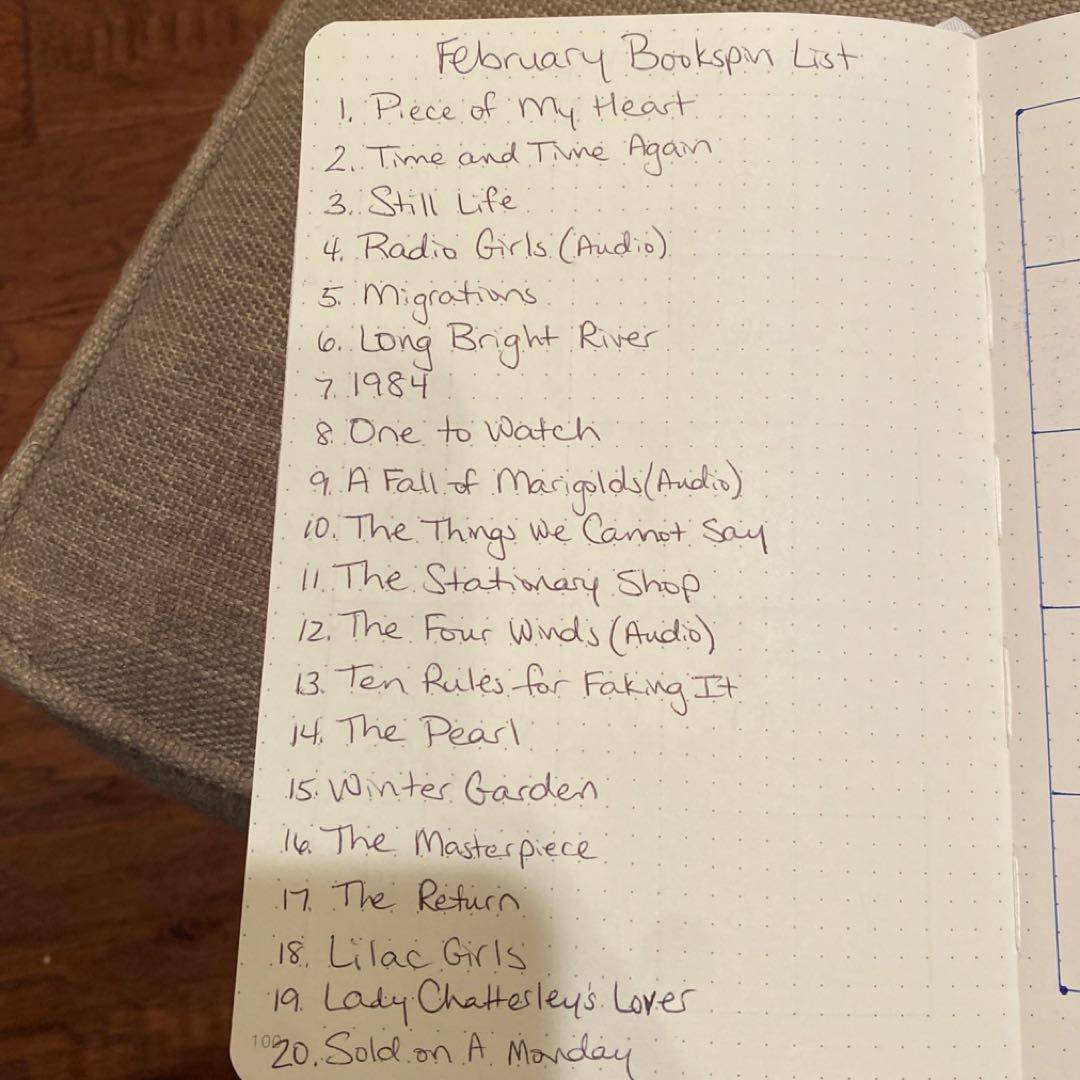 February Bookspin List
1. Piece of My Heart
2. Time and Time Again
3. Still Life
4. Radio Girls (Audio)
5. Migrations
6. Long Bright River
7. 1984
8. One to Watch
9. A Fall of Marigolds (Audio)
10. The Things We Cannot Say
11. The Stationary Shop
12. The Four Winds (Audio)
13. Ten Rules for Faking It
14. The Pearl
15. Winter Garden
16. The Masterpiece
17. The Return
18. Lilac Girls
19. Lady Chatterley's Lover
20. Sold on A Monday